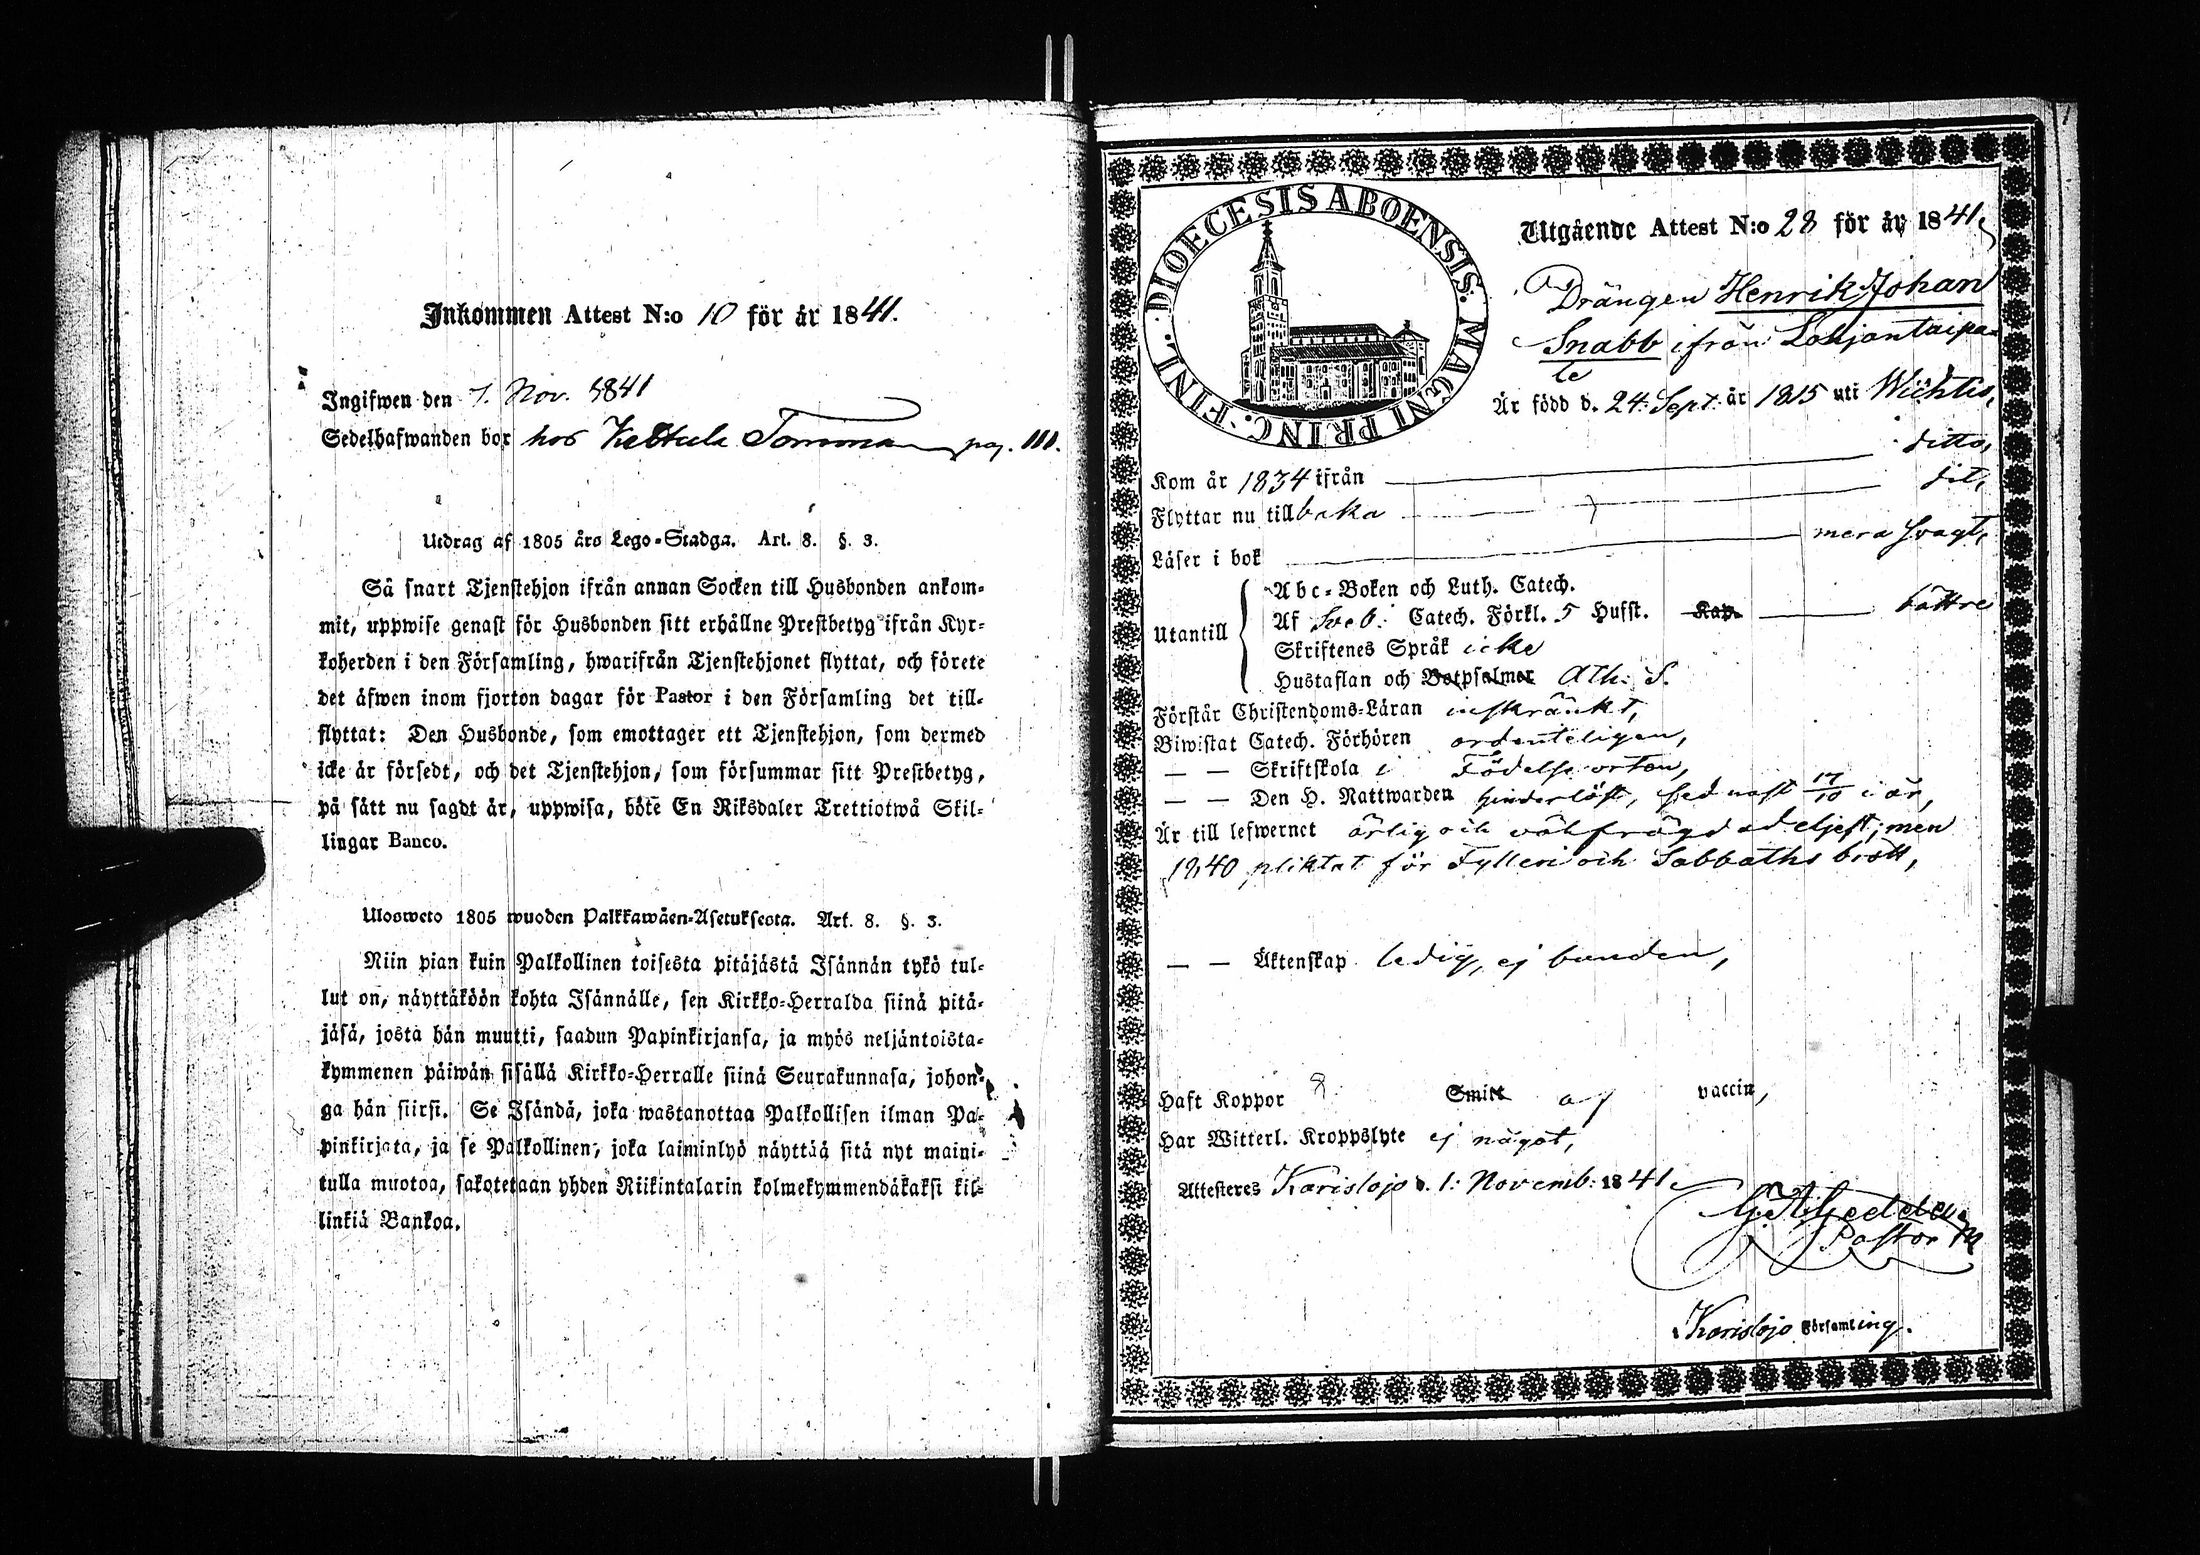 Inkommen Attest N:o 10 för år 1841.
Ingifwen den 7. Nov. 1841
Sedelhafwanden bor hos Kettula Tomma pag. 111.
Utdrag af 1805 års Lego-Stadga. Art. 8. §. 3.
Så snart Tjenstehjon ifrån annan Socken till Husbonden ankom-
mit, uppwise genast för Husbonden sitt erhållne Prestbetyg ifrån Kyr-
koherden i den Församling, hwarifrån Tjenstehjonet flyttat, och förete
det äfwen inom fjorton dagar för Pastor i den Församling det till-
flyttat: Den Husbonde, som emottager ett Tjenstehjon, som dermed
icke är försedt, och det Tjenstehjon, som försummar sitt Prestbetyg,
på sätt nu sagdt är, uppwisa, böte En Riksdaler Trettiotwå Skil-
lingar Banco.
Ulosweto 1805 wuoden Palkkawäen-Asetuksesta. Art. 8. §. 3.
Niin pian kuin Palkollinen toisesta pitäjästä Isännän tykö tul-
lut on, näyttäköön kohta Isännälle, sen Kirkko-Herralda siinä pitä-
jäsä, josta hän muutti, saadun Papinkirjansa, ja myös neljäntoista-
kymmenen päiwän sisällä Kirkko-Herralle siinä Seurakunnasa, johon-
ga hän siirsi. Se Isändä, joka wastanottaa Palkollisen ilman Pa-
pinkirjata, ja se Palkollinen, joka laiminlyö näyttää sitä nyt maini-
tulla muotoa, sakotetaan yhden Riikintalarin kolmekymmendäkaksi kil-
linkiä Bankoa.
DIOECESIS ABOENSIS. MAGNI PRINC. FINL.
Utgående Attest N:o 28 för år 1841,
Drängen Henrik Johan
Snabb ifrån Lohjantaipa-
le
Är född d. 24. Sept. år 1815 uti Wichtis,
Kom år 1834 ifrån ditto,
Flyttar nu tillbaka dit,
Läser i bok mera svagt,
Utantill
Abc-Boken och Luth. Catech.
Af Sveb. Catech. Förkl. 5 Hufst. Kap. bättre
Skriftenes Språk icke
Hustaflan och Botpsalmer Ath. S.
Förstår Christendoms-Läran inskränkt,
Biwistat Catech. Förhören ordenteligen,
— — Skriftskola i Födelseorten,
— — Den H. Nattwarden hinderlöst, sednast 17/10 i år,
Är till lefwernet ärlig och välfrägdad eljest; men
1840 pliktat för Fylleri och Sabbaths brott,
— — Äktenskap ledig, ej bunden,
Haft Koppor Smitt af vaccin,
Har Witterl. Kroppslyte ej något,
Attesteres Karislojo d. 1: Novemb: 1841.
G. A. Gedda
Pastor
i Karislojo Församling.